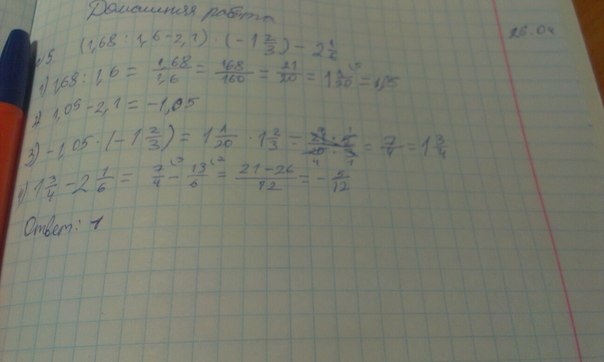 Домашняя работа
26.04
№5 (1,68 : 1,6 - 2,1) · (-1 2/3) - 2 1/6
1) 1,68 : 1,6 = 1,68/1,6 = 168/160 = 21/20 = 1 1/20 = 1,05
2) 1,05 - 2,1 = -1,05
3) -1,05 · (-1 2/3) = 1 1/20 · 1 2/3 = = 7/4 = 1 3/4
4) 1 3/4 - 2 1/6 = 7/4 - 13/6 = 21-26/12 = - 5/12
Ответ: 1